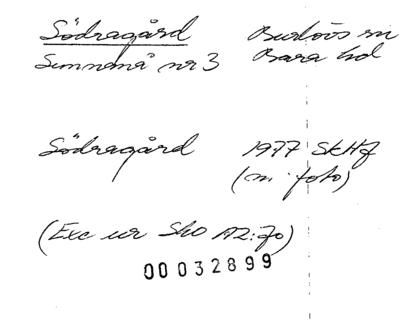 Södragård Burlövs sn
Sunnanå nr 3 Bara hd
Södragård 1977 SkHf
(m. foto)
(Exc ur Sho A2:70)
00032899